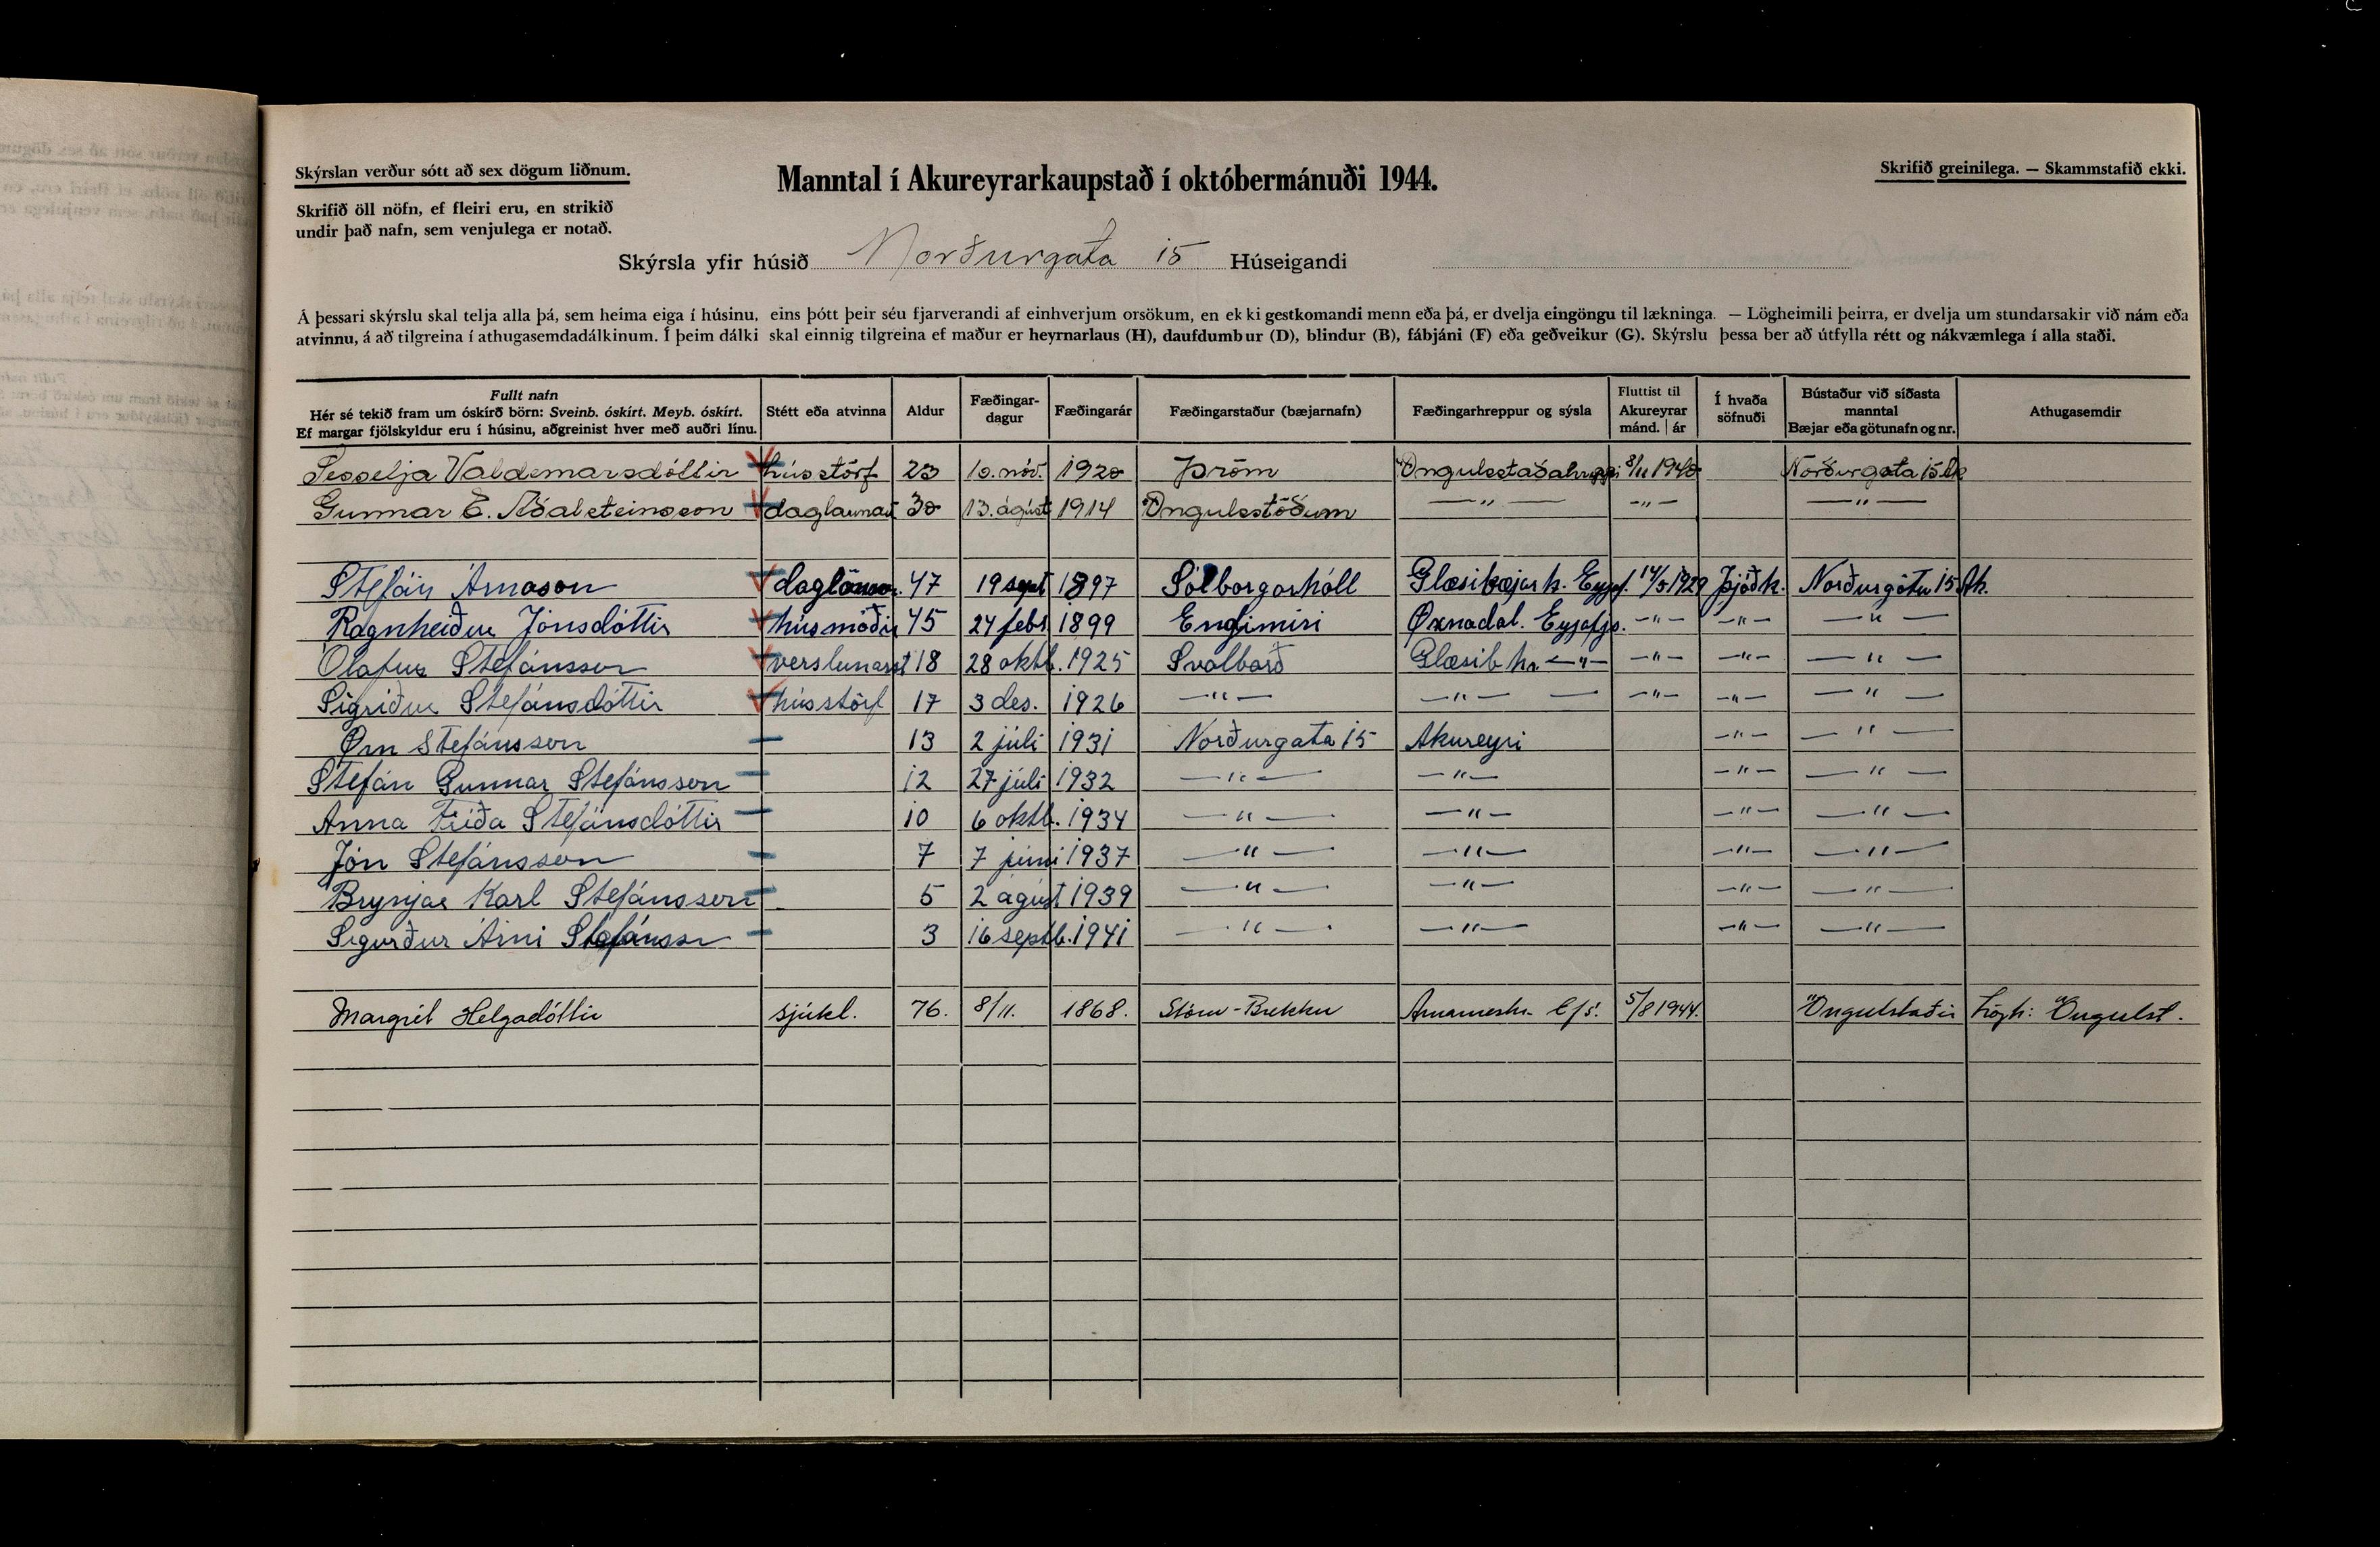 Skýrslan verður sótt að sex dögum liðnum.
Manntal í Akureyrarkaupstað í októbermánuði 1944.
Skrifið greinilega. — Skammstafið ekki.
Skrifið öll nöfn, ef fleiri eru, en strikið
undir það nafn, sem venjulega er notað.
Skýrsla yfir húsið Norðurgata 15 Húseigandi
Á þessari skýrslu skal telja alla þá, sem heima eiga í húsinu, eins þótt þeir séu fjarverandi af einhverjum orsökum, en ekki gestkomandi menn eða þá, er dvelja eingöngu til lækninga. — Lögheimili þeirra, er dvelja um stundarsakir við nám eða
atvinnu, á að tilgreina í athugasemdadálkinum. Í þeim dálki skal einnig tilgreina ef maður er heyrnarlaus (H), daufdumbur (D), blindur (B), fábjáni (F) eða geðveikur (G). Skýrslu þessa ber að útfylla rétt og nákvæmlega í alla staði.
Fullt nafn
Hér sé tekið fram um óskírð börn: Sveinb. óskírt. Meyb. óskírt.
Ef margar fjölskyldur eru í húsinu, aðgreinist hver með auðri línu.
Stétt eða atvinna
Aldur
Fæðingar-
dagur
Fæðingarár
Fæðingarstaður (bæjarnafn)
Fæðingarhreppur og sýsla
Fluttist til
Akureyrar
mánd. | ár
Í hvaða
söfnuði
Bústaður við síðasta
manntal
Bæjar eða götunafn og nr.
Athugasemdir
Sesselja Valdemarsdóttir hússtörf 23 10. nóv. 1920 Þröm Öngulsstaðahreppi 8/11 1940 Norðurgata 15 Ak
Gunnar E. Aðalsteinsson daglaunam 30 13. ágúst 1914 Öngulsstöðum —"— —"— —"—
Stefán Árnason daglaunam. 47 19 sept 1897 Sólborgarhóll Glæsibæjar h. Eyjaf. 14/5 1929 Þjóðk. Norðurgötu 15 Ak.
Ragnheiður Jónsdóttir húsmóðir 45 24 febr 1899 Engimýri Øxnadal. Eyjafjs. —"— —"— —"—
Ólafur Stefánsson verslunarst 18 28 oktb. 1925 Svalbarð Glæsib hr. —"— —"— —"— —"—
Sigríður Stefánsdóttir hússtörf 17 3 des. 1926 —"— —"— — —"— —"— —"—
Ørn Stefánsson 13 2 júli 1931 Norðurgata 15 Akureyri —"— —"—
Stefán Gunnar Stefánsson 12 27 júli 1932 —"— —"— —"— —"—
Anna Fríða Stefánsdóttir 10 6 oktb. 1934 —"— —"— —"— —"—
Jón Stefánsson 7 7 júni 1937 —"— —"— —"— —"—
Brynjar Karl Stefánsson 5 2 ágúst 1939 —"— —"— —"— —"—
Sigurður Árni Stefánss 3 16 septb. 1941 —"— —"— —"— —"—
Margrét Helgadóttir sjúkl. 76. 8/11. 1868. Stóru-Brekku Arnarneshr. Efs. 5/8 1944. Öngulstaðir Lögh: Öngulst.